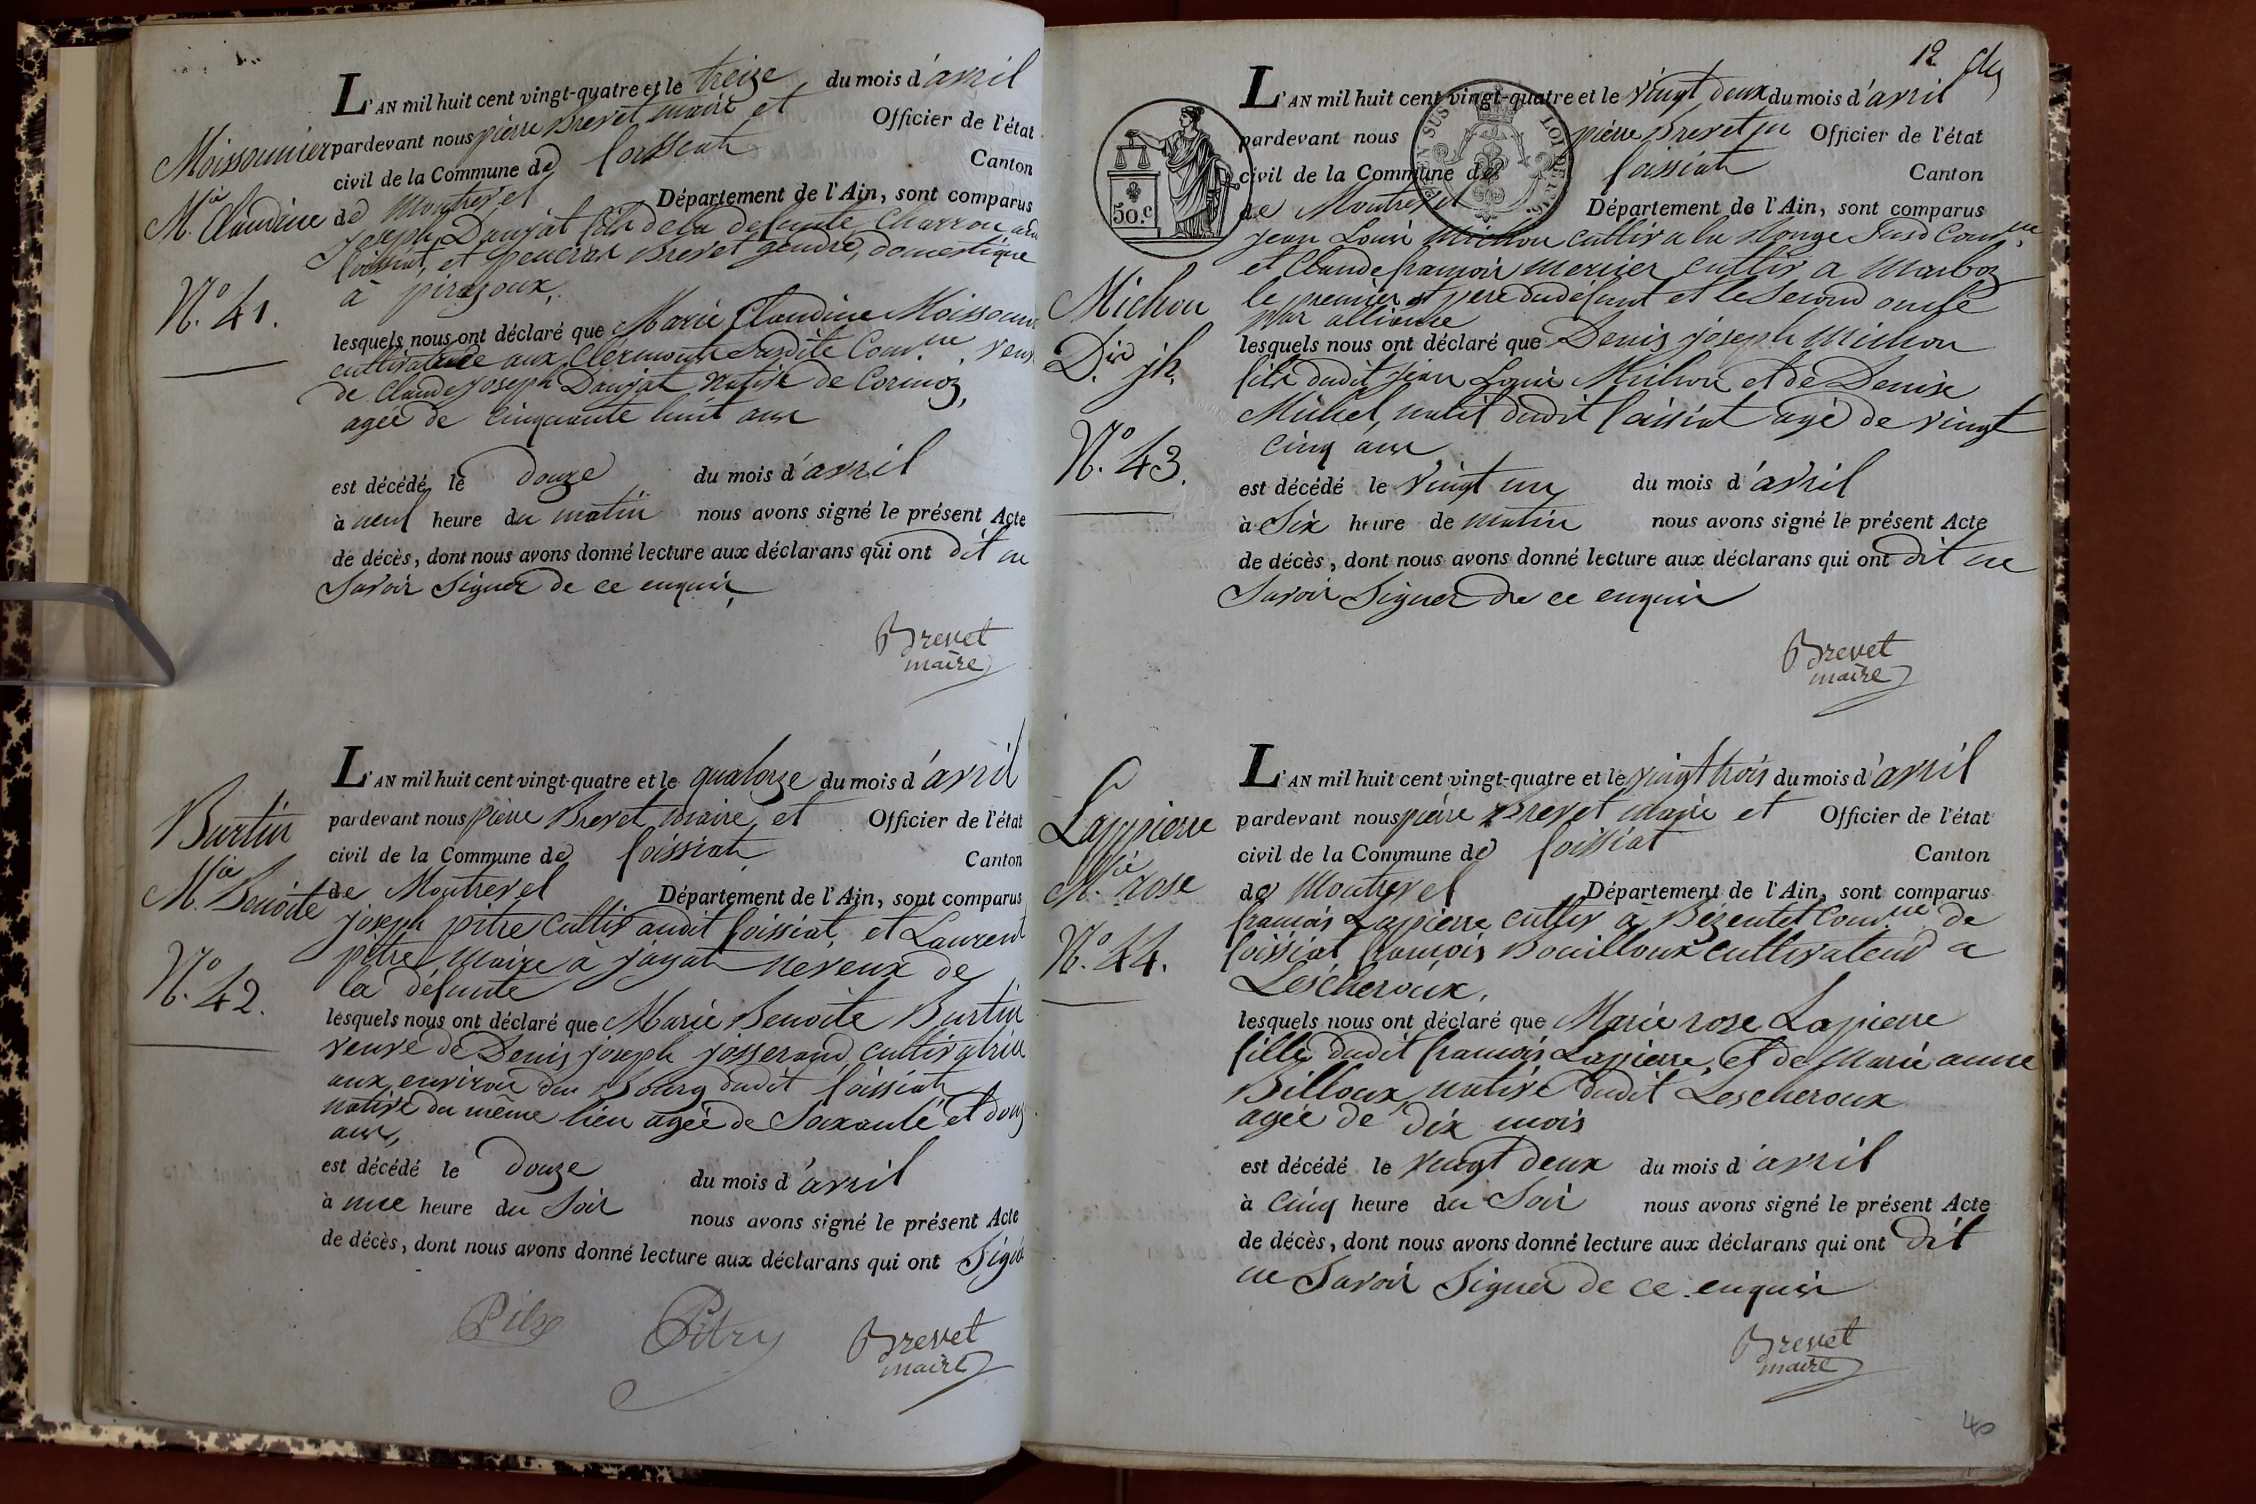 L'AN mil huit cent vingt-quatre et le treize du mois d'avril
pardevant nous pierre Brevet maire et Officier de l'état
civil de la Commune de foissiat Canton
de Montrevel Département de l'Ain, sont comparus
joseph Daujat fils de la defunte Charron
foissiat, et Brevet gendre, domestique
à pirajoux,
lesquels nous ont déclaré que Marie Claudine Moissonnier
cultivatrice aux Clermonts susdite Com.ne, veuve
de Claude joseph Daujat native de Cormoz,
agée de cinquante huit ans
est décédé le douze du mois d'avril
à neuf heure du matin nous avons signé le présent Acte
de décès, dont nous avons donné lecture aux déclarans qui ont dit ne
Savoir Signer de ce enquis
Brevet
maire
Moissonnier
M.ie Claudine
N.o 41.
L'AN mil huit cent vingt-quatre et le quatorze du mois d'avril
pardevant nous pierre Brevet maire et Officier de l'état
civil de la Commune de foissiat Canton
de Montrevel Département de l'Ain, sont comparus
joseph pitre cultiv audit foissiat, et Laurent
pitre maire à jayat neveux de
la défunte
lesquels nous ont déclaré que Marie Benoite Burtin
veuve de Denis joseph josserand cultivatrice
aux environs du Bourg dudit foissiat
native du même lieu agée de Soixante et douze
ans,
est décédé le douze du mois d'avril
à une heure du Soir nous avons signé le présent Acte
de décès, dont nous avons donné lecture aux déclarans qui ont Signé
Pitre Pitre Brevet
maire
Burtin
M.ie Benoite
N.o 42.
12
L'AN mil huit cent vingt-quatre et le vingt deux du mois d'avril
pardevant nous pierre Brevet m Officier de l'état
civil de la Commune de foissiat Canton
de Montrevel Département de l'Ain, sont comparus
jean Louis Michon cultiv a la Monge Susd Com.ne
et Claude françois mercier cultiv a Marboz
le premier et pere du défunt et le Second oncle
par alliance
lesquels nous ont déclaré que Denis joseph Michon
fils dudit jean Louis Michon et de Denise
Michel, natif dudit foissiat agé de vingt
cinq ans
est décédé le vingt un du mois d'avril
à Six heure de matin nous avons signé le présent Acte
de décès, dont nous avons donné lecture aux déclarans qui ont dit ne
Savoir Signer de ce enquis
Brevet
maire
50.c
Michon
D.is jh.
N.o 43.
L'AN mil huit cent vingt-quatre et le vingt trois du mois d'avril
pardevant nous pierre Brevet maire et Officier de l'état
civil de la Commune de foissiat Canton
de Montrevel Département de l'Ain, sont comparus
françois Lapierre cultiv a Bézentet Com.ne de
foissiat françois Bouilloux cultivateur a
Lescheroux,
lesquels nous ont déclaré que Marie rose Lapierre
fille dudit françois Lapierre, et de Marie anne
Billoux native dudit Lescheroux
agée de dix mois
est décédé le vingt deux du mois d'avril
à cinq heure du Soir nous avons signé le présent Acte
de décès, dont nous avons donné lecture aux déclarans qui ont dit
ne Savoir Signer de ce enquis
Brevet
maire
Lappierre
M.ie rose
N.o 44.
40